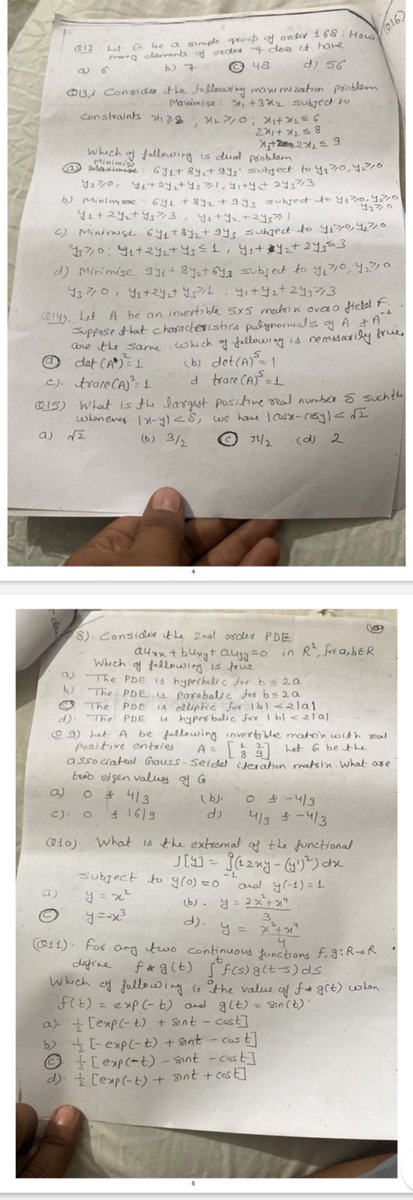 016)
Q12 Let G be a simple group of order 168. How
many elements of order 7 does it have
a) 6 b) 7 c) 48 d) 56
Q13) Consider the following maximization problem
Maximise: x1 + 3x2 subject to
Constraints , x2 ≥ 0; x1 + x2 ≤ 6
2x1 + x2 ≤ 8
2x2 ≤ 9
Which of following is dual problem
a) Minimise : 6y1 + 8y2 + 9y3 subject to y1 ≥ 0, y2 ≥ 0
y3 ≥ 0, y1 + 2y2 + y3 ≥ 1, y1 + y2 + 2y3 ≥ 3
b) Minimise : 6y1 + 8y2 + 9y3 subject to y1 ≥ 0, y2 ≥ 0
y3 ≥ 0
y1 + 2y2 + y3 ≥ 3, y1 + y2 + 2y3 ≥ 1
c) Minimise 6y1 + 8y2 + 9y3 subject to y1 ≥ 0, y2 ≥ 0
y3 ≥ 0; y1 + 2y2 + y3 ≤ 1, y1 + y2 + 2y3 ≤ 3
d) Minimise 9y1 + 8y2 + 6y3 subject to y1 ≥ 0, y2 ≥ 0
y3 ≥ 0, y1 + 2y2 + y3 ≥ 1, y1 + y2 + 2y3 ≥ 3
Q14). Let A be an invertible 5x5 matrix over a field F.
Suppose that characteristics polynomials of A & A⁻¹
are the same. which of following is necessarily true
a) det(A)² = 1 (b) det(A)⁵ = 1
c). trace(A)² = 1 d trace(A)⁵ = 1
Q15) What is the largest positive real number δ such th
whenever |x-y| < δ, we have |cosx - cosy| < √2
a) √2 (b) 3/2 c) π/2 (d) 2
4
8). Consider the 2nd order PDE
auxx + buxy + auyy = 0 in R², for a,b ∈ R
Which of following is true
a) The PDE is hyperbolic for b ≤ 2a
b) The PDE is parabolic for b ≤ 2a
c) The PDE is elliptic for |b| < 2|a|
d). The PDE is hyperbolic for |b| < 2|a|.
Q 9) Let A be following invertible matrix with real
positive entries A = [1 2; 8 9]. Let G be the
associated Gauss-Seidel iteration matrix. What are
two eigen values of G
a) 0 & 4/3 (b). 0 & -4/3
c). 0 & 16/9 d) 4/3 & -4/3
Q10). What is the extremal of the functional
J[y] = ∫₋₁⁰ (12xy - (y')²) dx
subject to y(0) = 0 and y(-1) = 1
a) y = x² (b). y = 2x² + x⁴ / 3
c) y = -x³ d). y = x² + x⁴ / 4
(Q11). For any two continuous functions f, g: R→R
define f * g(t) ∫₀ᵗ f(s) g(t-s) ds
Which of following is the value of f * g(t) when
f(t) = exp(-t) and g(t) = sin(t)
a). ½ [exp(-t) + sint - cost]
b) ½ [-exp(-t) + sint - cost]
c) ½ [exp(-t) - sint - cost]
d). ½ [exp(-t) + sint + cost]
5